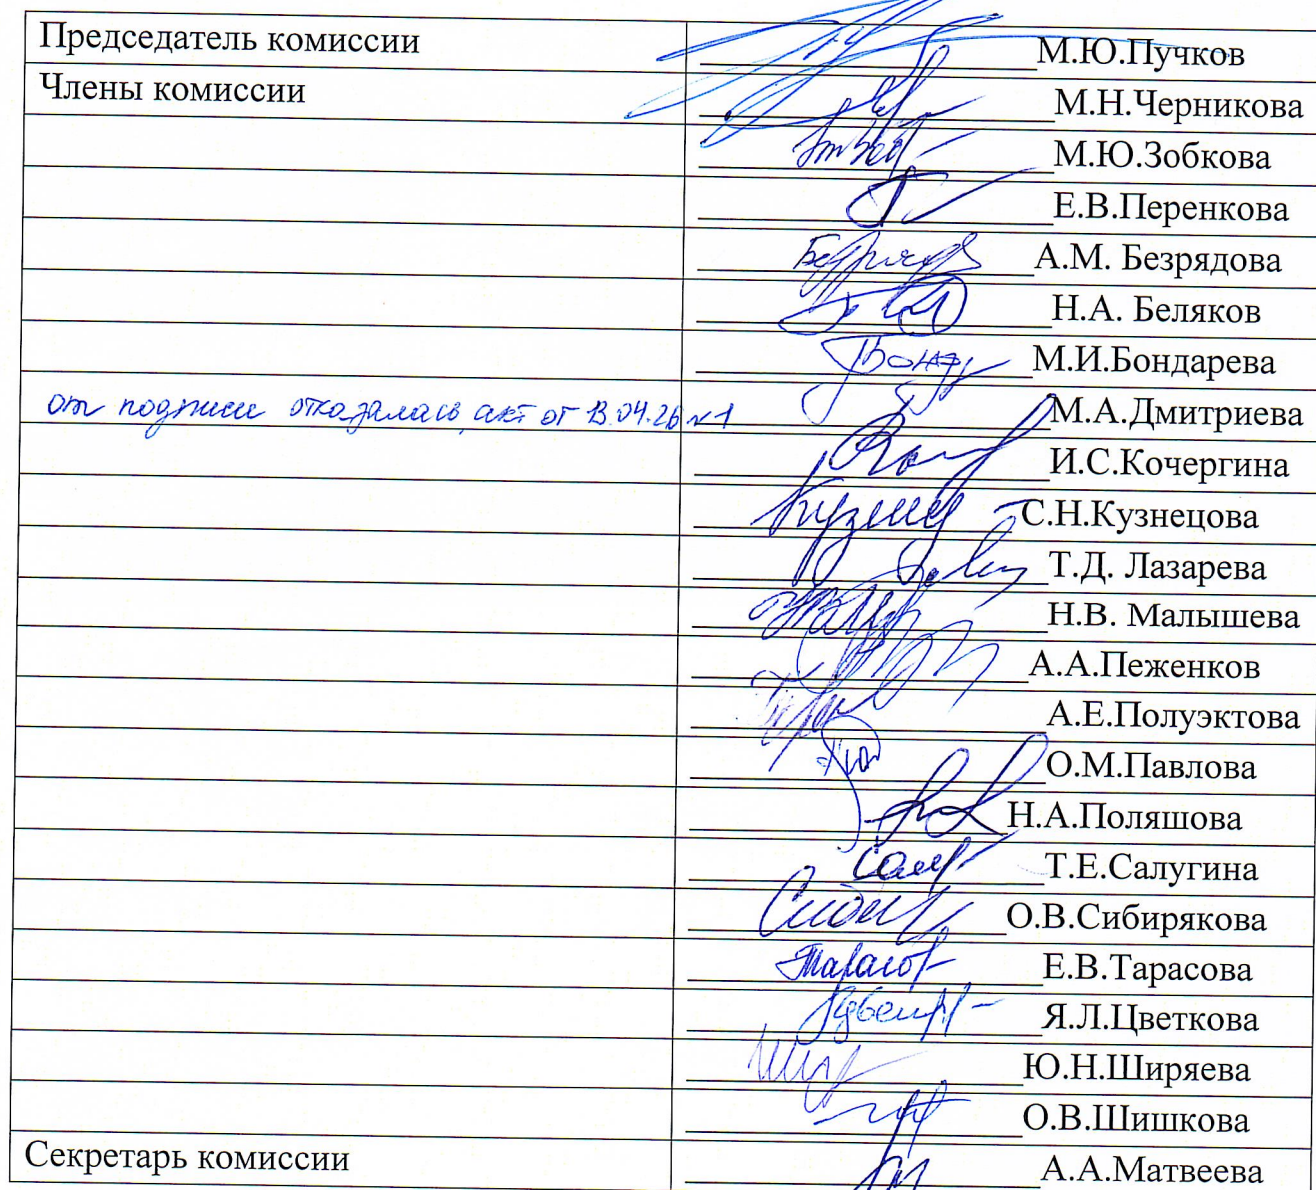 Председатель комиссии М.Ю.Пучков
Члены комиссии М.Н.Черникова
М.Ю.Зобкова
Е.В.Перенкова
А.М. Безрядова
Н.А. Беляков
М.И.Бондарева
от подписи отказалась, акт от 13.04.26 №1 М.А.Дмитриева
И.С.Кочергина
С.Н.Кузнецова
Т.Д. Лазарева
Н.В. Малышева
А.А.Пеженков
А.Е.Полуэктова
О.М.Павлова
Н.А.Поляшова
Т.Е.Салугина
О.В.Сибирякова
Е.В.Тарасова
Я.Л.Цветкова
Ю.Н.Ширяева
О.В.Шишкова
Секретарь комиссии А.А.Матвеева